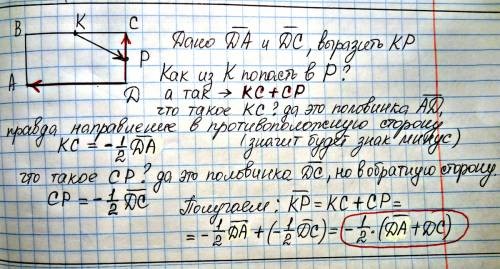 B K C
P
A D
Дано D̅A̅ и D̅C̅, выразить KP
Как из K попасть в P?
а так → KC+CP
что такое KC? да это половинка A̅D̅,
правда направление в противоположную сторону
KC = -1/2 D̅A̅ (значит будет знак минус)
что такое CP? да это половинка D̅C̅, но в обратную сторону.
CP = -1/2 D̅C̅
Получаем: K̅P̅ = KC + CP =
= -1/2 D̅A̅ + (-1/2 D̅C̅) = -1/2 · (D̅A̅ + DC)